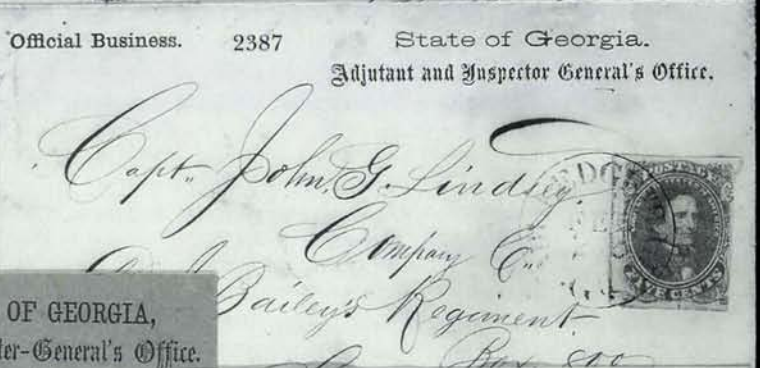 Official Business. 2387 State of Georgia.
Adjutant and Inspector General's Office.
Capt. John. G. Lindsey
Company
Bailey's Regiment
Box
POSTAGE
FIVE CENTS
EDGE
OF GEORGIA,
er-General's Office.